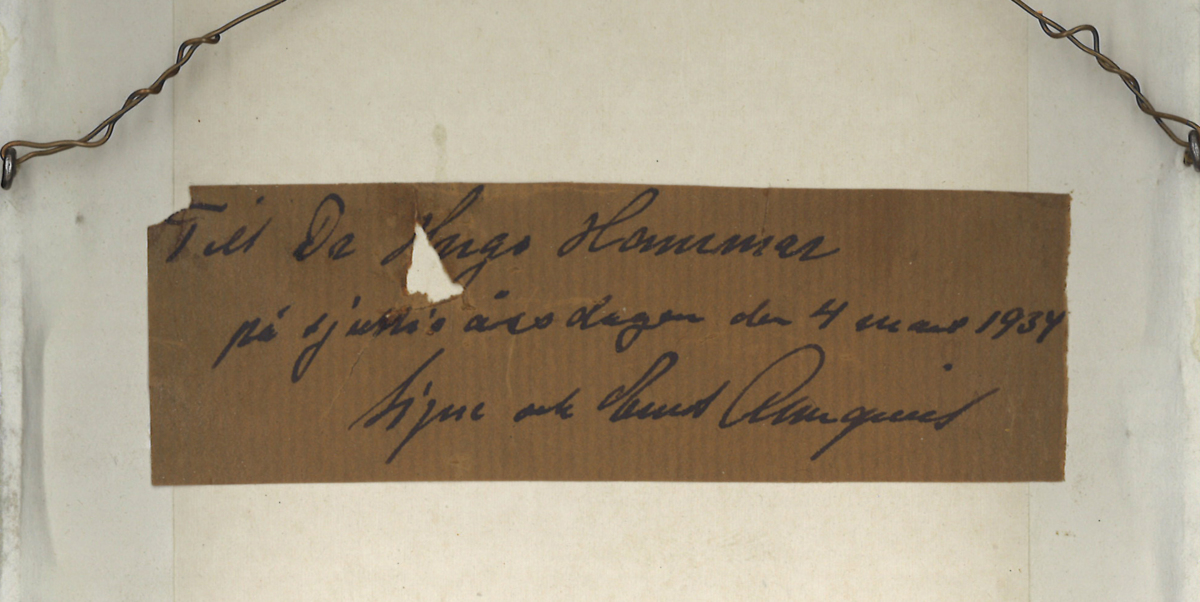 Till Dr Hugo Hammar
på sjuttio årsdagen den 4 mars 1934
Signe och Ernst